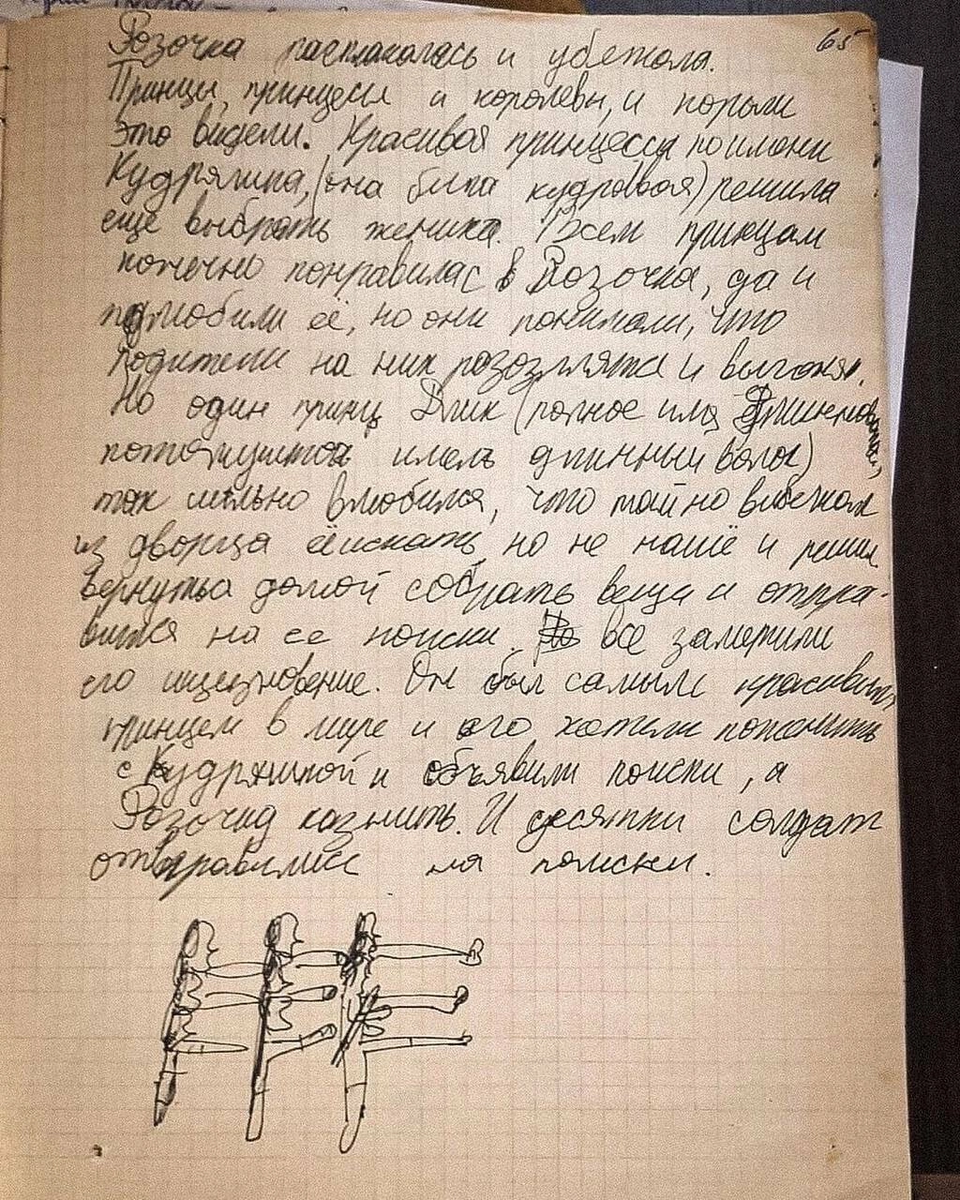 65
Розочка расплакалась и убежола.
Принцы, принцесы и королевы, и короли
это видели. Красивая принцесса по имени
Кудряшка, (она была кудрявая) решила
ещё выбрать жениха. Всем принцам
конечно понравилась Розочка, да и
полюбили её, но они понимали, что
родители на них розозлятся и выгонят.
Но один принц Длик (полное имя
потомушто имель длинный волос)
так сильно влюбился, что тайно выбежал
из дворца её искать, но не нашё и решил
вернутьса домой собрать вещи и отпра-
вится на её поиски. все заметили
его ищезновение. Он был самым красивым
принцем в мире и его хотели поженить
с Кудряшкой и объявили поиски, а
Розочку казнить. И десятки солдат
отправились на поиски.